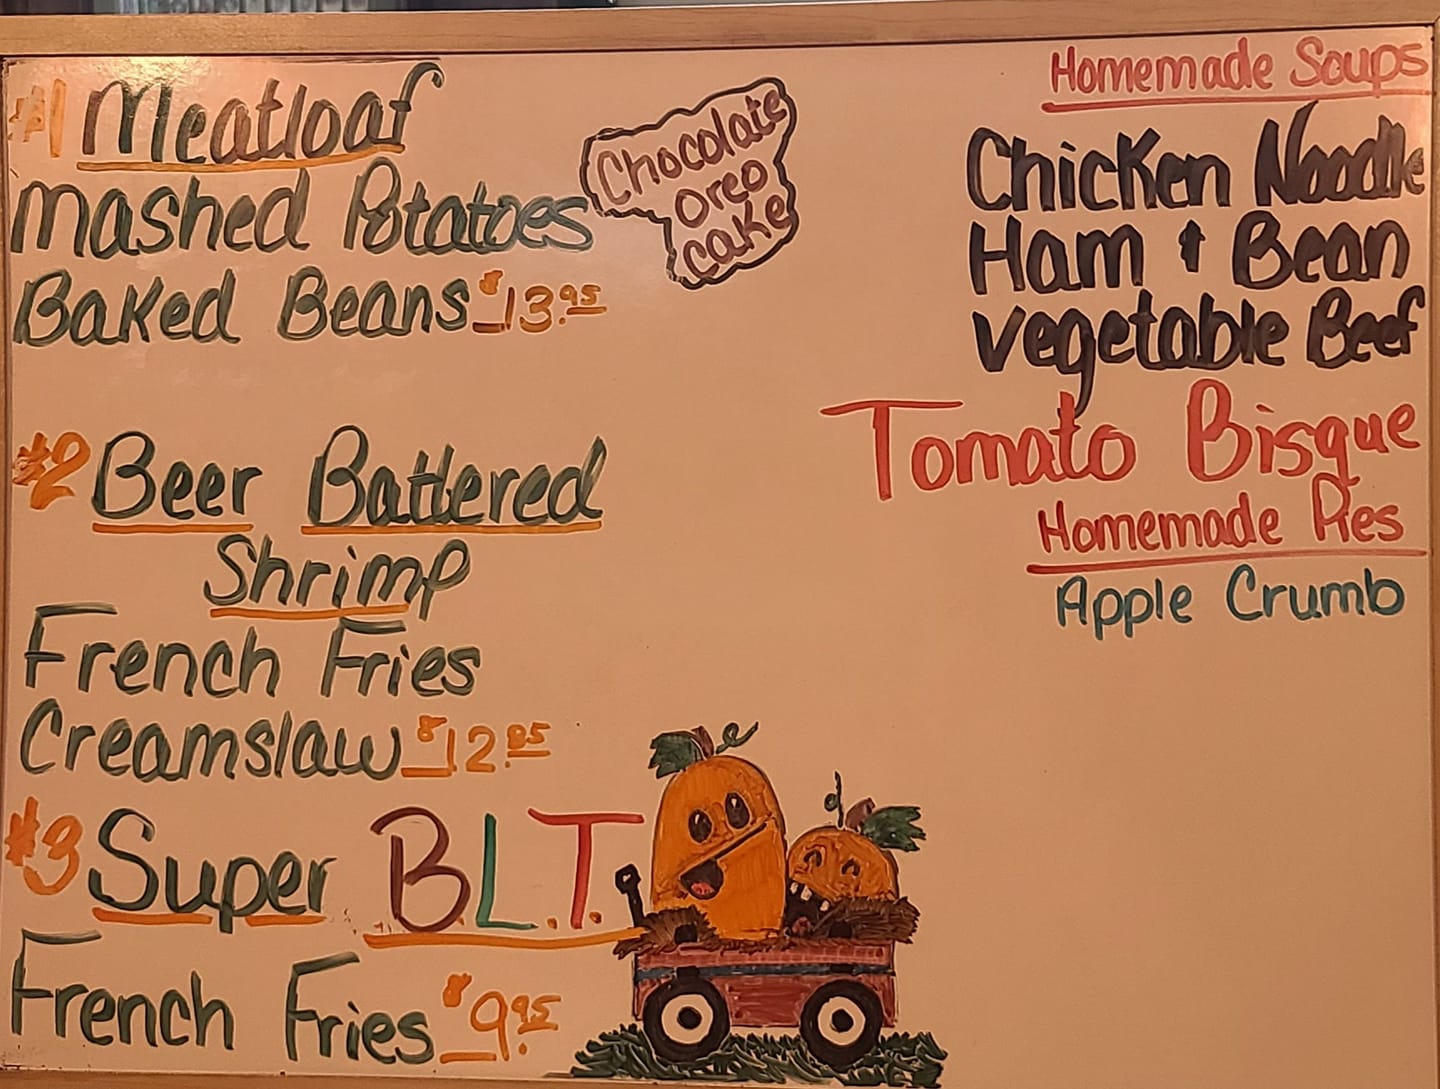 #1 Meatloaf
Mashed Potatoes
Baked Beans $13.95
Chocolate
Oreo
Cake
#2 Beer Battered
Shrimp
French Fries
Creamslaw $12.95
#3 Super B.L.T.
French Fries $9.95
Homemade Soups
Chicken Noodle
Ham & Bean
Vegetable Beef
Tomato Bisque
Homemade Pies
Apple Crumb